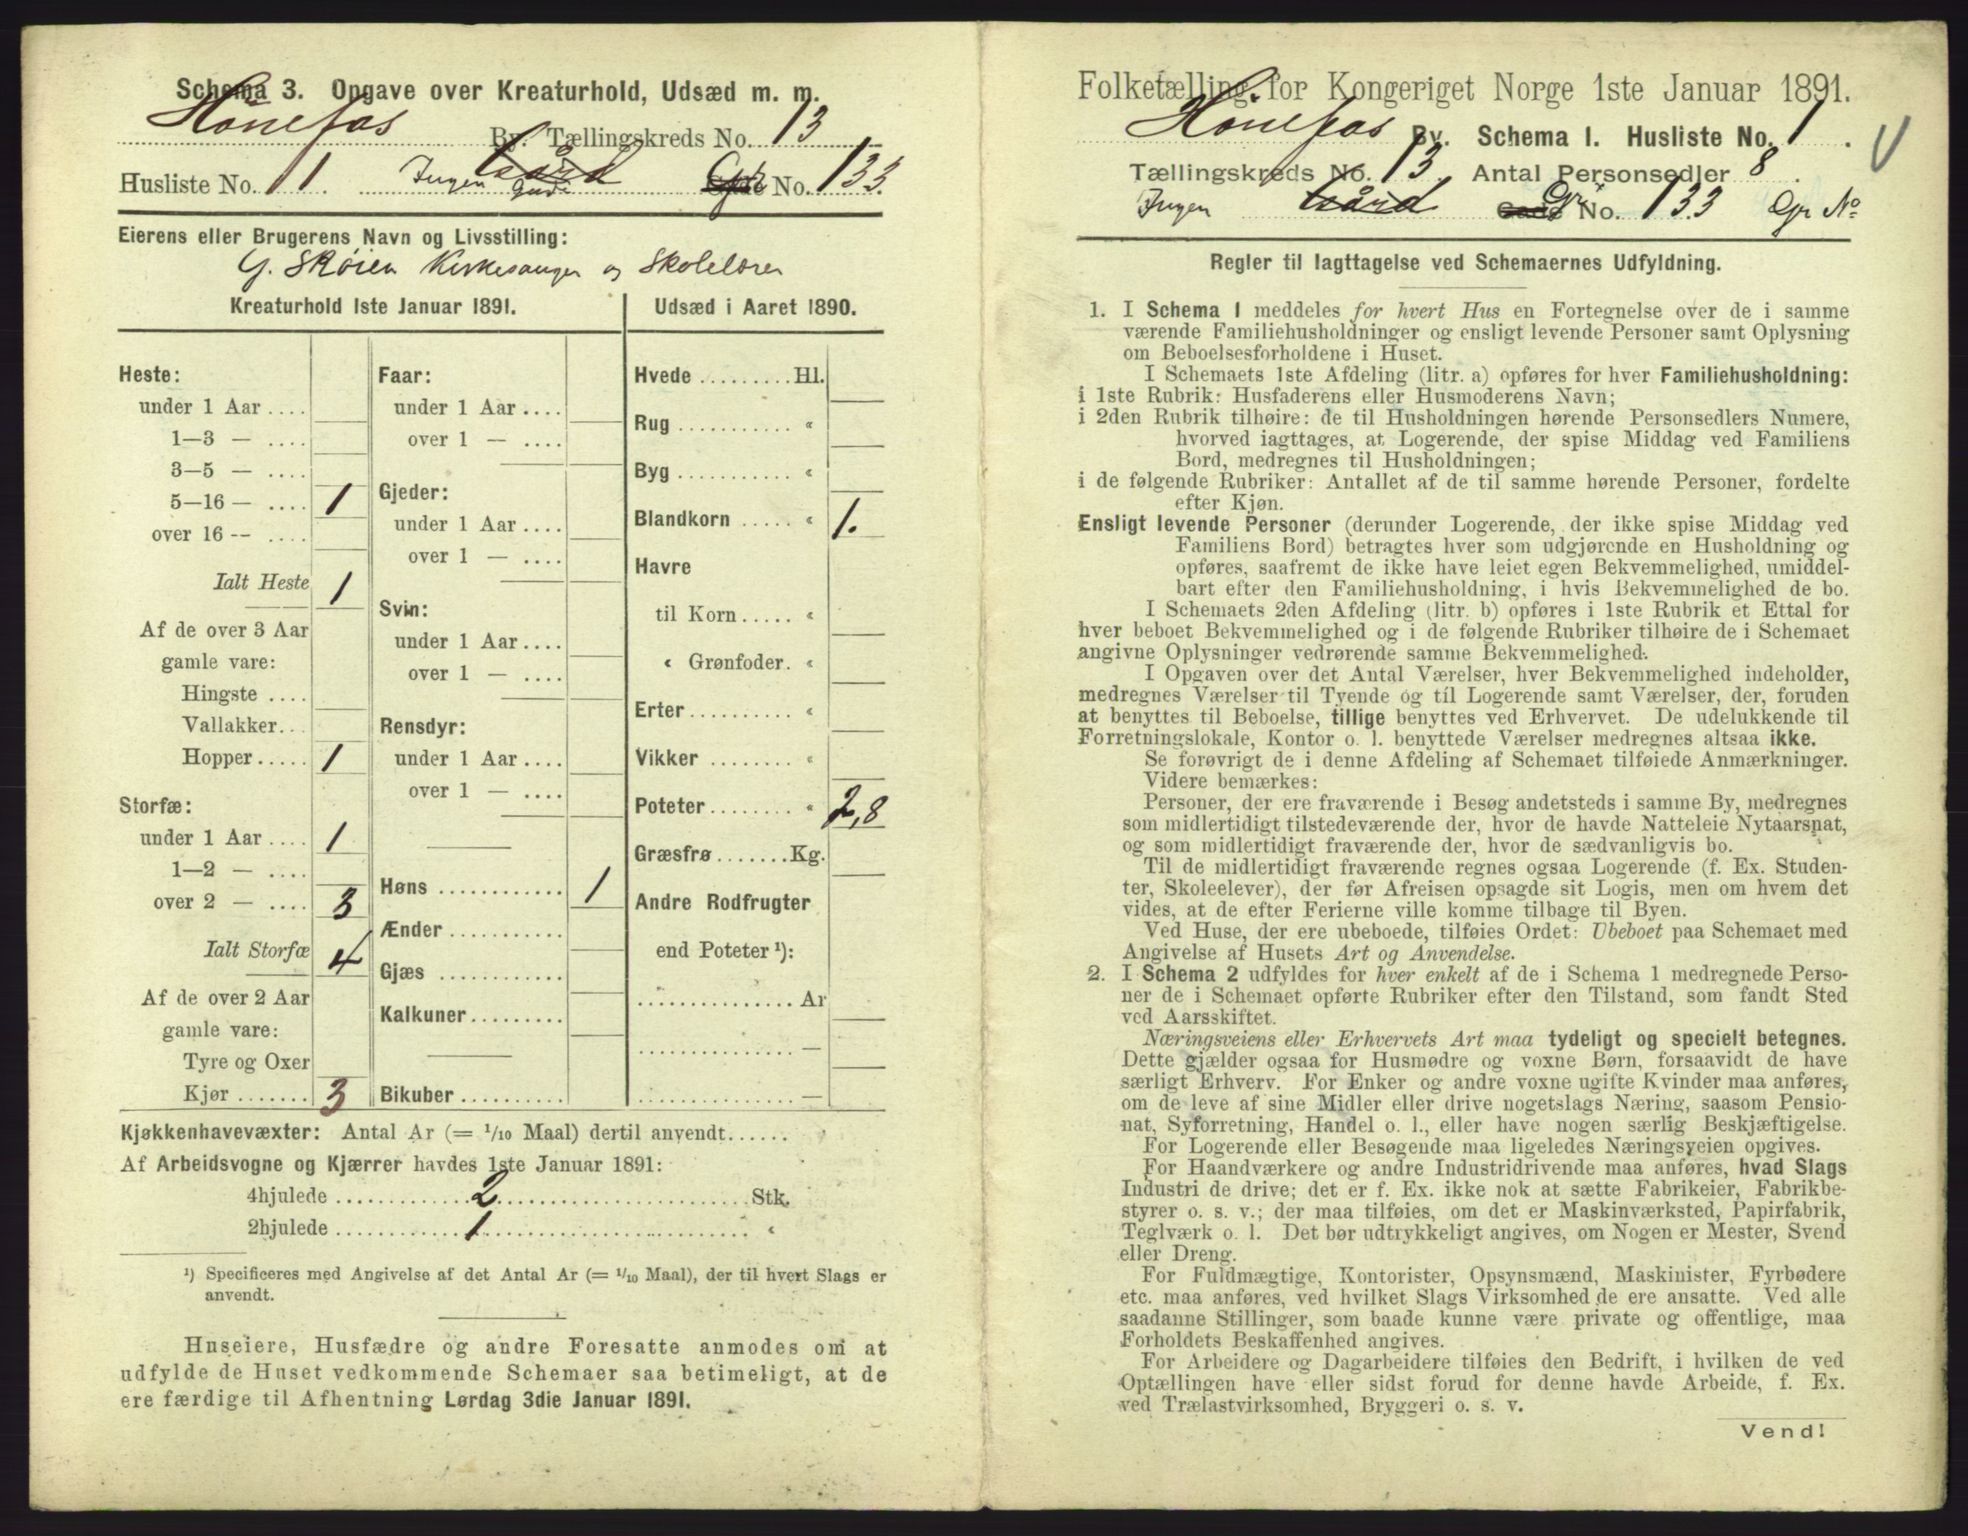 Schema 3. Opgave over Kreaturhold, Udsæd m. m.
Hönefos By. Tællingskreds No. 13
Husliste No. 11. Ingen Gård Gade Gr No. 133.
Eierens eller Brugerens Navn og Livsstilling:
G. Skøien Kirkesanger og Skolelærer
Kreaturhold 1ste Januar 1891.
Heste:
under 1 Aar ....
1—3 — ....
3—5 — ....
5—16 — .... 1
over 16 — ....
Ialt Heste 1
Af de over 3 Aar
gamle vare:
Hingste ....
Vallakker..
Hopper..... 1
Storfæ:
under 1 Aar .... 1
1—2 — ....
over 2 — .... 3
Ialt Storfæ 4
Af de over 2 Aar
gamle vare:
Tyre og Oxer
Kjør ....... 3
Faar:
under 1 Aar ....
over 1 — ....
Gjeder:
under 1 Aar ....
over 1 — ....
Svin:
under 1 Aar ....
over 1 — ....
Rensdyr:
under 1 Aar ....
over 1 — ....
Høns ............ 1
Ænder ...........
Gjæs ............
Kalkuner.........
Bikuber ..........
Udsæd i Aaret 1890.
Hvede ......... Hl.
Rug ........... «
Byg ........... «
Blandkorn ..... « 1.
Havre
til Korn..... «
« Grønfoder. «
Erter.......... «
Vikker ........ «
Poteter........ « 2,8
Græsfrø.......Kg.
Andre Rodfrugter
end Poteter ¹):
............... Ar
............... —
............... —
Kjøkkenhavevæxter: Antal Ar (= 1/10 Maal) dertil anvendt......
Af Arbeidsvogne og Kjærrer havdes 1ste Januar 1891:
4hjulede .......... 2 .......... Stk.
2hjulede .......... 1 .......... «
¹) Specificeres med Angivelse af det Antal Ar (= 1/10 Maal), der til hvert Slags er
anvendt.
Huseiere, Husfædre og andre Foresatte anmodes om at
udfylde de Huset vedkommende Schemaer saa betimeligt, at de
ere færdige til Afhentning Lørdag 3die Januar 1891.
Folketælling for Kongeriget Norge 1ste Januar 1891.
Hönefos By. Schema I. Husliste No. 1.
Tællingskreds No. 13. Antal Personsedler 8.
Ingen Gård Gade Gr No. 133 Gr No
Regler til Iagttagelse ved Schemaernes Udfyldning.
1. I Schema 1 meddeles for hvert Hus en Fortegnelse over de i samme
værende Familiehusholdninger og ensligt levende Personer samt Oplysning
om Beboelsesforholdene i Huset.
I Schemaets 1ste Afdeling (litr. a) opføres for hver Familiehusholdning:
i 1ste Rubrik: Husfaderens eller Husmoderens Navn;
i 2den Rubrik tilhøire: de til Husholdningen hørende Personsedlers Numere,
hvorved iagttages, at Logerende, der spise Middag ved Familiens
Bord, medregnes til Husholdningen;
i de følgende Rubriker: Antallet af de til samme hørende Personer, fordelte
efter Kjøn.
Ensligt levende Personer (derunder Logerende, der ikke spise Middag ved
Familiens Bord) betragtes hver som udgjørende en Husholdning og
opføres, saafremt de ikke have leiet egen Bekvemmelighed, umiddel-
bart efter den Familiehusholdning, i hvis Bekvemmelighed de bo.
I Schemaets 2den Afdeling (litr. b) opføres i 1ste Rubrik et Ettal for
hver beboet Bekvemmelighed og i de følgende Rubriker tilhøire de i Schemaet
angivne Oplysninger vedrørende samme Bekvemmelighed.
I Opgaven over det Antal Værelser, hver Bekvemmelighed indeholder,
medregnes Værelser til Tyende og til Logerende samt Værelser, der, foruden
at benyttes til Beboelse, tillige benyttes ved Erhvervet. De udelukkende til
Forretningslokale, Kontor o. l. benyttede Værelser medregnes altsaa ikke.
Se forøvrigt de i denne Afdeling af Schemaet tilføiede Anmærkninger.
Videre bemærkes:
Personer, der ere fraværende i Besøg andetsteds i samme By, medregnes
som midlertidigt tilstedeværende der, hvor de havde Natteleie Nytaarsnat,
og som midlertidigt fraværende der, hvor de sædvanligvis bo.
Til de midlertidigt fraværende regnes ogsaa Logerende (f. Ex. Studen-
ter, Skoleelever), der før Afreisen opsagde sit Logis, men om hvem det
vides, at de efter Ferierne ville komme tilbage til Byen.
Ved Huse, der ere ubeboede, tilføies Ordet: Ubeboet paa Schemaet med
Angivelse af Husets Art og Anvendelse.
2. I Schema 2 udfyldes for hver enkelt af de i Schema 1 medregnede Perso-
ner de i Schemaet opførte Rubriker efter den Tilstand, som fandt Sted
ved Aarsskiftet.
Næringsveiens eller Erhvervets Art maa tydeligt og specielt betegnes.
Dette gjælder ogsaa for Husmødre og voxne Børn, forsaavidt de have
særligt Erhverv. For Enker og andre voxne ugifte Kvinder maa anføres,
om de leve af sine Midler eller drive nogetslags Næring, saasom Pensio-
nat, Syforretning, Handel o. l., eller have nogen særlig Beskjæftigelse.
For Logerende eller Besøgende maa ligeledes Næringsveien opgives.
For Haandværkere og andre Industridrivende maa anføres, hvad Slags
Industri de drive; det er f. Ex. ikke nok at sætte Fabrikeier, Fabrikbe-
styrer o. s. v.; der maa tilføies, om det er Maskinværksted, Papirfabrik,
Teglværk o. l. Det bør udtrykkeligt angives, om Nogen er Mester, Svend
eller Dreng.
For Fuldmægtige, Kontorister, Opsynsmænd, Maskinister, Fyrbødere
etc. maa anføres, ved hvilket Slags Virksomhed de ere ansatte. Ved alle
saadanne Stillinger, som baade kunne være private og offentlige, maa
Forholdets Beskaffenhed angives.
For Arbeidere og Dagarbeidere tilføies den Bedrift, i hvilken de ved
Optællingen have eller sidst forud for denne havde Arbeide, f. Ex.
ved Trælastvirksomhed, Bryggeri o. s. v.
Vend!